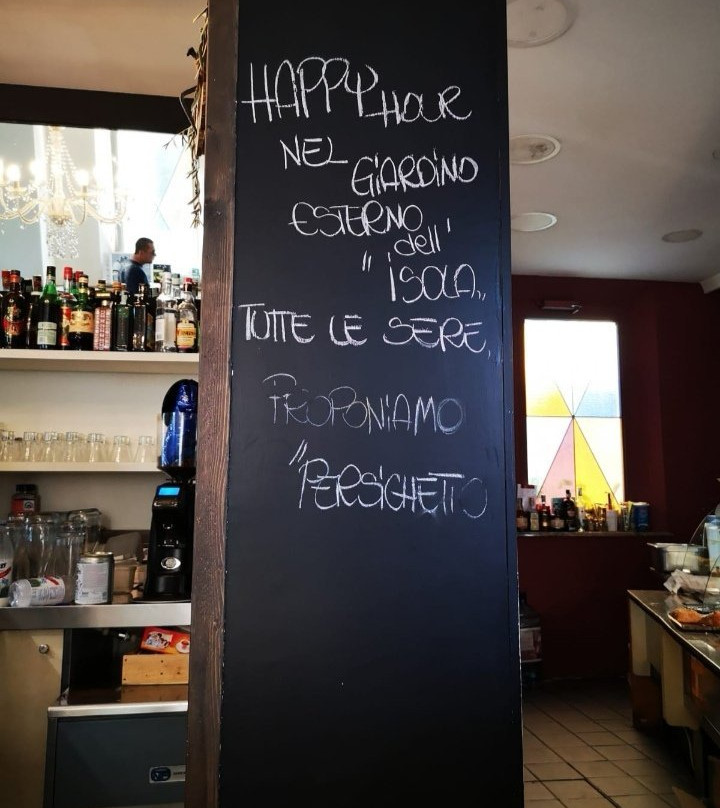 HAPPY HOUR
NEL GIARDINO
ESTERNO dell'
"ISOLA"
TUTTE LE SERE,
PROPONIAMO
"PERSICHETTO